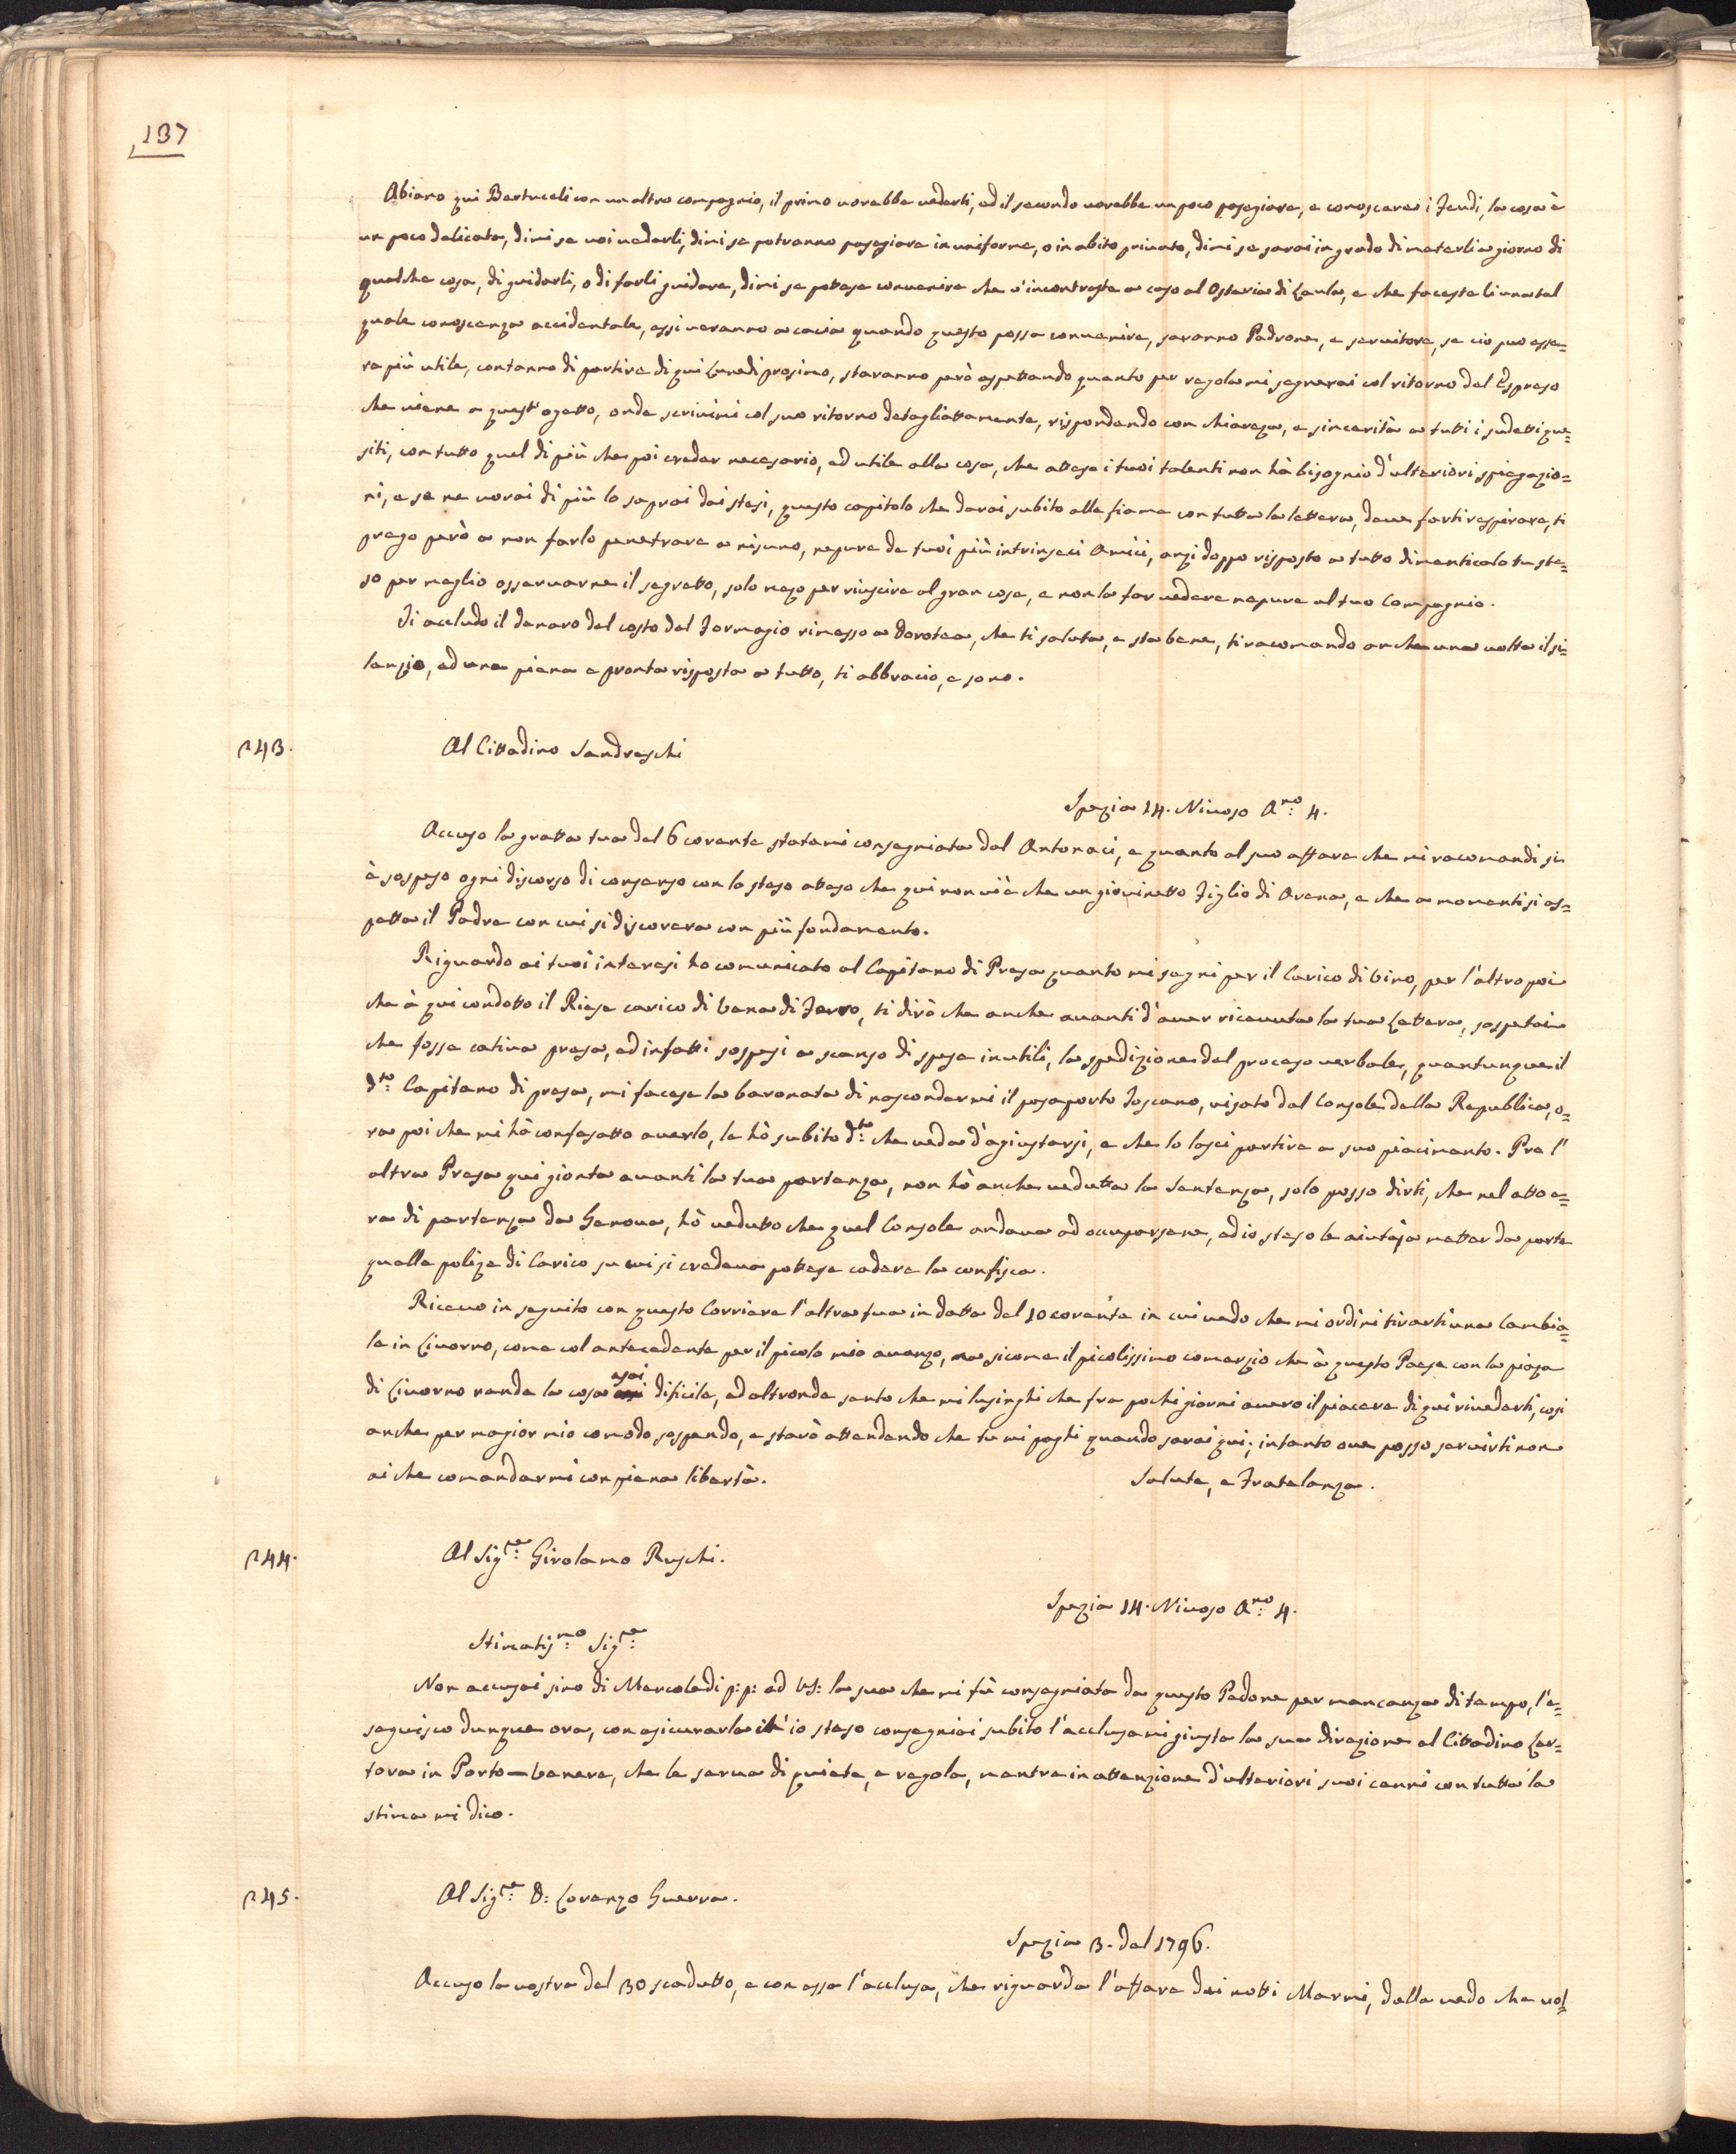 137
Abiamo qui Bertuceli con un altro compagnio, il primo vorebbe vederti, ed il secondo vorebbe un poco pasegiare, e conoscere i Feudi, la cosa è
un poco delicata, dimi se voi vederli, dimi se potranno pasegiare in uniforme, o in abito privato, dimi se sarai in grado di meterli a giorno di
qualche cosa, di guidarli, o di farli guidare, dimi se potese convenire che v'incontraste a caso al Ostaria di Caula, e che faceste li una tal
quale conoscenza accidentale, essi veranno a cacia quando questo possa convenire, saranno Padrone, e servitore, se cio può esse=
re più utile, contanno di partire di qui Lunedi prosimo, staranno però aspettando quanto per regola mi segnerai col ritorno del Espreso
che viene a quest'ogetto, onde scrivimi col suo ritorno detagliattamente, rispondendo con chiareza, e sincerità a tutti i sudetti que=
siti, con tutto quel di più che poi creder necesario, ed utile alla cosa, che atteso i tuoi talenti non hà bisognio d'ulteriori spiegazio=
ni, e se ne vorai di più lo saprai dai stesi, questo capitolo che darai subito alle fiame con tutta la lettera, deve farti respirare, ti
prego però a non farlo penetrare a nisuno, nepure de tuoi più intrinseci Amici, anzi doppo risposto a tutto dimenticalo tu ste=
so per meglio osservarne il segretto, solo mezo per riuscire al gran cose, e non la far vedere nepure al tuo Compagnio.
Ti accludo il denaro del costo del Formagio rimesso a Dorotea, che ti saluta, e sta bene, ti racomando anche una volta il si=
lenzio, ed una piena e pronta risposta a tutto, ti abbracio, e sono.
243.
Al Cittadino Sandreschi
Spezia 14. Nivoso Anno 4.
Accuso la gratta tua del 6 corente statami consegniata dal Antonaci, e quanto al suo affare che mi racomandi si
è sospeso ogni discorso di conserso con lo steso atteso che qui non vi è che un giovinetto Figlio di Avena, e che a momenti si as=
petta il Padre con cui si discorera con più fondamento.
Riguardo ai tuoi interesi ho comunicato al Capitano di Presa quanto mi segni per il Carico di vino, per l'altro poi
che à qui condotto il Riese carico di vena di Ferro, ti dirò che anche avanti d'aver ricevuta la tua Lettera, sospetai
che fosse cativa presa, ed infatti sospesi a scanso di spese inutili, la spedizione del proceso verbale, quantunque il
dto: Capitano di presa, mi facese la baronata di nascondermi il pasaporto Toscano, visato dal Console della Republica, o=
ra poi che mi hà confesatto averlo, le hò subito dto: che veda d'agiustarsi, e che lo lasci partire a suo piacimento. Pre l'
altra Presa qui gionta avanti la tua partenza, non hò anche vedutta la Sentenza, solo posso dirti, che nel atto o=
ra di partenza da Genova, hò vedutto che quel Console andava ad occuparsene, ed io steso le aiutai a metter da parte
quelle polize di Carico su cui si credeva potese cadere la confisca.
Ricevo in seguito con questo Corriere l'altra tua in datta del 10 corente in cui vedo che mi ordini tirarti una Cambia=
le in Livorno, come col antecedente per il picolo mio avanzo, ma sicome il picolissimo comerzio che à questo Paese con la piaza
di Livorno rende la cosa asai dificile, ed altronde sento che mi lusinghi che fra pochi giorni avero il piacere di qui rivederti, cosi
anche per magior mio comodo sospendo, e starò attendendo che tu mi paghi quando sarai qui; intanto ove posso servirti non
ai che comandarmi con piena libertà.
Salute, e Fratelanza.
244.
Al Sigre: Girolamo Ruschi.
Spezia 14. Nivoso Anno 4.
Stimatismo: Sigre:
Non accusai sino di Mercoledi p:p: ad VS: la sua che mi fù consegniata da questo Padone per mancanza di tempo, l'e=
seguisco dunque ora, con asicurarla io steso consegniai subito l'acclusami giusta la sua direzione al Cittadino Ler=
tora in Porto-Venere, che le serva di quiete, e regola, mentre in attenzione d'ulteriori suoi cenni con tutta la
stima mi dico.
245.
Al Sigre: D: Lorenzo Guerra.
Spezia 3. del 1796.
Accuso la vostra del 30 scadutto, e con essa l'acclusa, che riguarda l'affare dei notti Marmi, dalla vedo che vol=